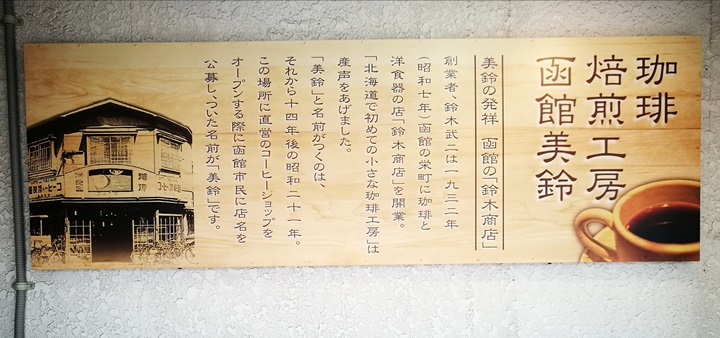 珈琲
焙煎工房
函館美鈴
美鈴の発祥 函館の「鈴木商店」
創業者、鈴木武二は一九三二年
(昭和七年)函館の栄町に珈琲と
洋食器の店「鈴木商店」を開業。
「北海道で初めての小さな珈琲工房」は
産声をあげました。
「美鈴」と名前がつくのは、
それから十四年後の昭和二十一年。
この場所に直営のコーヒーショップを
オープンする際に函館市民に店名を
公募し、ついた名前が「美鈴」です。